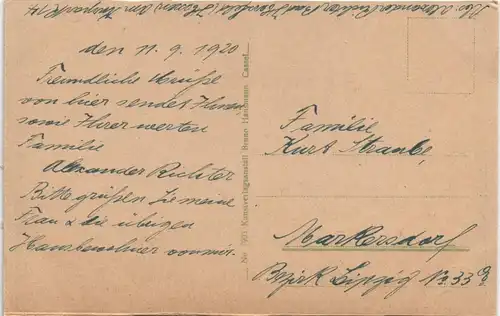 den 11. 9. 1920
Freundliche Grüße
von hier sendet Ihnen
sowie Ihrer werten
Familie
Alexander Richter
Bitte grüßen Sie meine
Frau & die übrigen
Hausbewohner von mir.
No 7971 Kunstverlagsanstalt Bruno Hansmann Cassel
Familie
Kurt Straube,
Markersdorf
Bezirk Leipzig No. 33